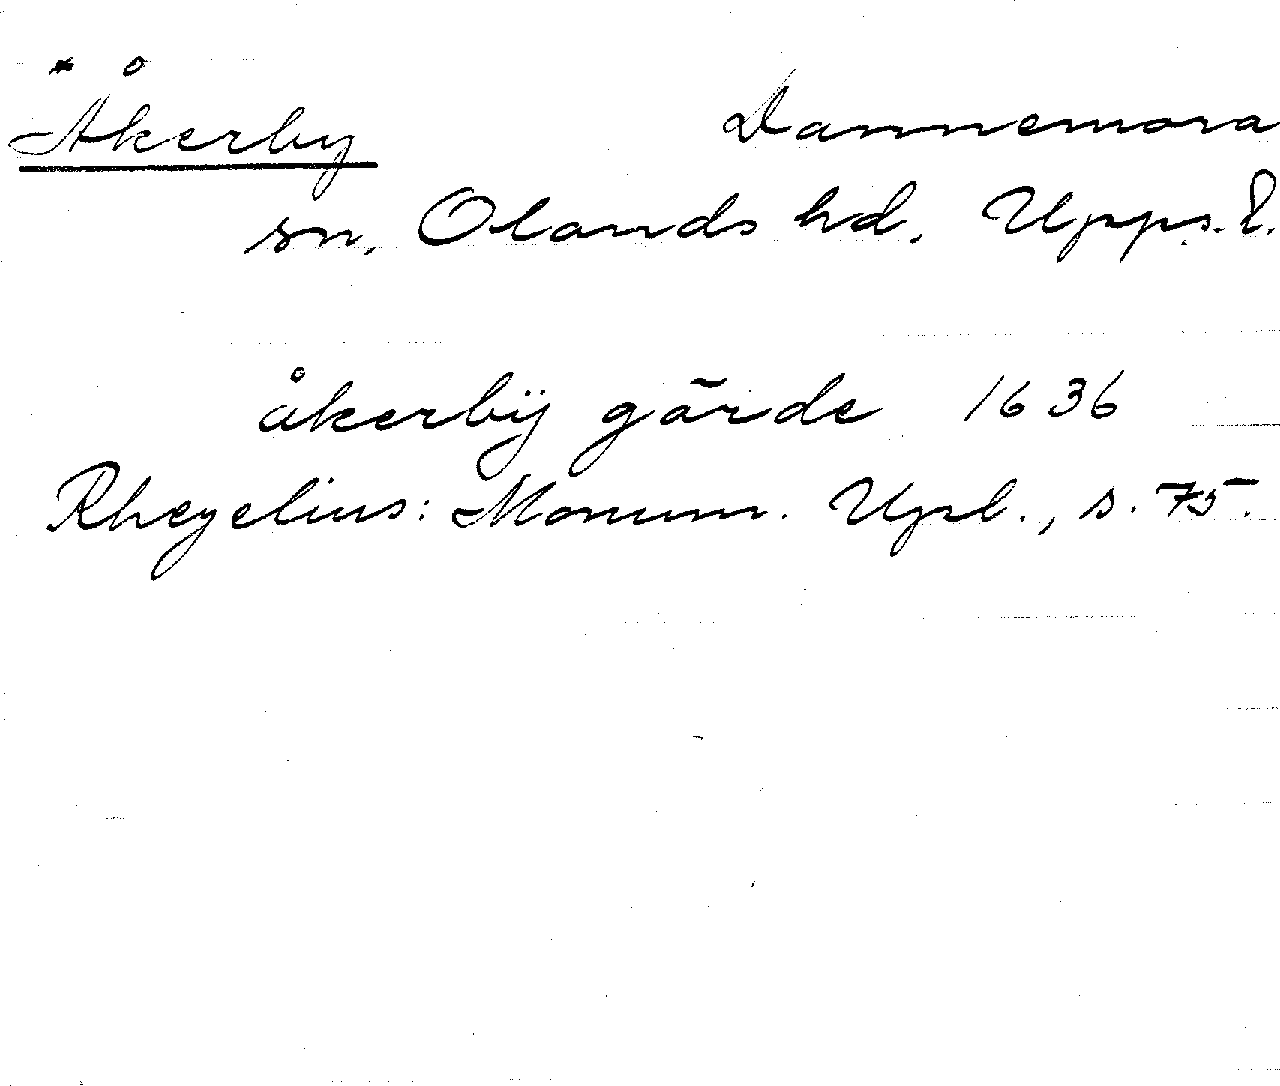 * Åkerby Dannemora
sn, Olands hd. Upps. l.
åkerbÿ gārde 1636
Rhezelius: Monum. Upl., s. 75.